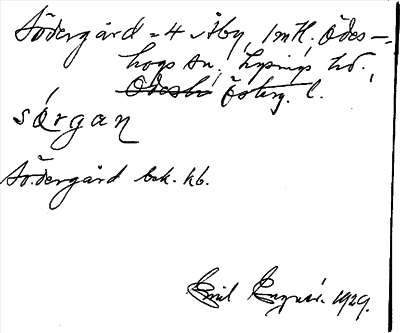 Södergård = 4 Åby, 1 mtl., Ödes-
hogs sn., Lysings hd.,
Ödesh Österg. l.
sǿrgan
Södergård bok. kb.
Emil 1929.